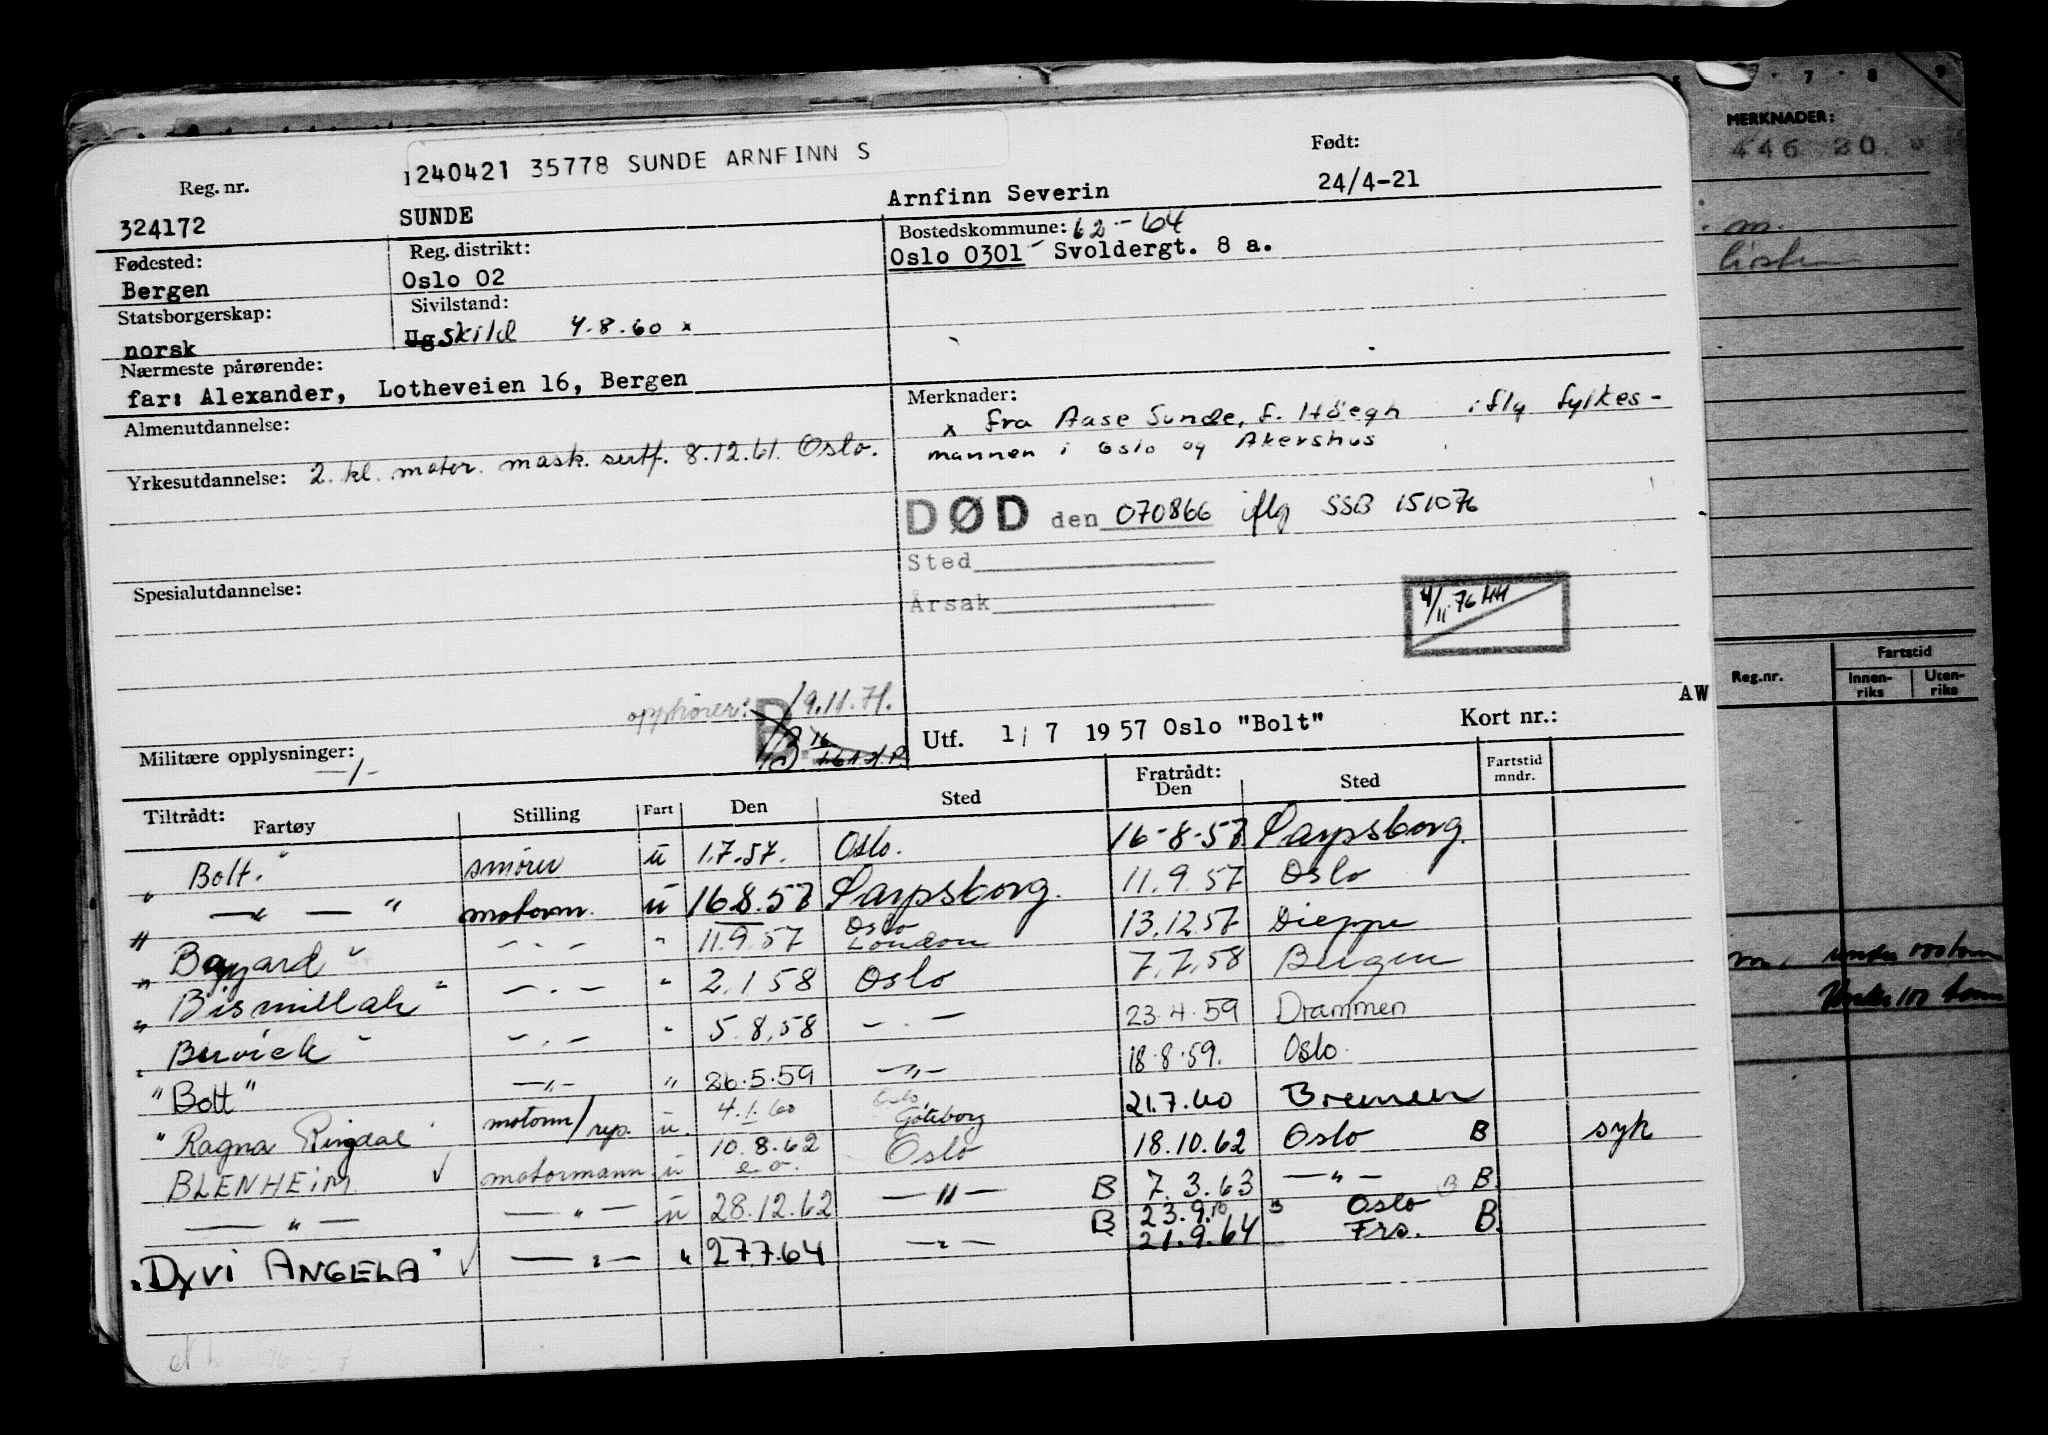 240421 35778 SUNDE ARNFINN S
Reg. nr.
324172
SUNDE
Arnfinn Severin
Født:
24/4-21
Fødested:
Bergen
Reg. distrikt:
Oslo 02
Bostedskommune: 62-64
Oslo 0301 Svoldergt. 8 a.
Statsborgerskap:
norsk
Sivilstand:
Ug skild 4.8.60 x
Nærmeste pårørende:
far: Alexander, Lotheveien 16, Bergen
Almenutdannelse:
Yrkesutdannelse: 2. kl. motor. mask. sertf. 8.12.61. Oslo.
Spesialutdannelse:
Merknader:
x fra Aase Sunde, f. Höegh iflg fylkes-
mannen i Oslo og Akershus
DØD den 070866 iflg SSB 151076
Sted
Årsak
4/11-76 HH
opphører: 19.11.71.
Militære opplysninger:
Utf. 1/7 1957 Oslo "Bolt"
Kort nr.:
AW
Tiltrådt:
Fartøy Stilling Fart Den Sted
Fratrådt:
Den Sted
Fartstid
mndr.
"Bolt." smører u 1.7.57. Oslo. 16-8-57 Sarpsborg.
" — " — " motorm. u 16.8.57 Sarpsborg. 11.9.57 Oslo
" Bayard " — . — " 11.9.57 Oslo London 13.12.57 Dieppe
" Bismillah " — . — " 2.1.58 Oslo 7.7.58 Bergen
" Berwick " — . — " 5.8.58 — . — 23.4.59 Drammen
"Bolt" — " — " 26.5.59 — " — 18.8.59. Oslo.
" Ragna Ringdal motorm/rep. u. 4.1.60 Oslo, Göteborg 21.7.60 Bremen
BLENHEIM motormann u 10.8.62 e.o. Oslo 18.10.62 Oslo B syk
— " — — " — u 28.12.62 — " — B 7.3.63 — " — B.
"DYVI ANGELA" — " — " 27.7.64 — " — B 23.9. 21.9.64 B Oslo Frs. B.
MERKNADER:
446 20.
m.
Reg.nr.
Fartstid
Innen-
riks
Uten-
riks
under 100 tonn
Under 100 tonn